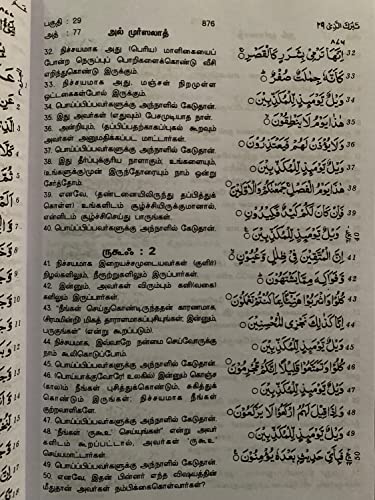 பகுதி : 29
அத் : 77
அல் முர்ஸலாத்
876
٢٩
32. நிச்சயமாக அது (பெரிய) மாளிகையைப்
போன்ற நெருப்புப் பொறிகளைக்கொண்டு வீசி
எறிந்துகொண்டு இருக்கும்.
33. நிச்சயமாக அது, மஞ்சள் நிறமுள்ள
ஒட்டகைகள்போல் இருக்கும்.
34. பொய்ப்பிப்பவர்களுக்கு அந்நாளில் கேடுதான்.
35. இது அவர்கள் (எதுவும்) பேசமுடியாத நாள்.
36. அன்றியும், (தப்பிப்பதற்காகப்)புகல் கூறவும்
அவர்கள் அனுமதிக்கப்பட மாட்டார்கள்.
37. பொய்ப்பிப்பவர்களுக்கு அந்நாளில் கேடுதான்.
38. இது தீர்ப்புக்குரிய நாளாகும்; உங்களையும்,
உங்களுக்குமுன் இருந்தோரையும் நாம் ஒன்று
சேர்த்தோம்.
39. எனவே, (தண்டனையிலிருந்து தப்பித்துக்
கொள்ள) உங்களிடம் சூழ்ச்சியிருக்குமானால்,
என்னிடம் சூழ்ச்சிசெய்து பாருங்கள்.
40. பொய்ப்பிப்பவர்களுக்கு அந்நாளில் கேடுதான்.
ருகூஃ : 2
41. நிச்சயமாக இறையச்சமுடையவர்கள் (குளிர்)
நிழல்களிலும், நீருற்றுகளிலும் இருப்பார்கள்.
42. இன்னும், அவர்கள் விரும்பும் கனிவகை
களிலும் இருப்பார்கள்.
43. "நீங்கள் செய்துகொண்டிருந்ததன் காரணமாக,
(சுவர்க்கத்தில்) மிகத் தாராளமாகப்புசியுங்கள்; இன்னும்,
பருகுங்கள்" (என்று கூறப்படும்).
44. நிச்சயமாக, இவ்வாறே நன்மை செய்வோருக்கு
நாம் கூலிகொடுப்போம்.
45. பொய்ப்பிப்பவர்களுக்கு அந்நாளில் கேடுதான்.
46. (பொய்யாக்குவோரே! உலகில்) இன்னும் கொஞ்ச
(காலம்) நீங்கள் புசித்துக்கொண்டும், சுகித்துக்
கொண்டும் இருங்கள்; நிச்சயமாக நீங்கள்
குற்றவாளிகளே.
47. பொய்ப்பிப்பவர்களுக்கு அந்நாளில் கேடுதான்.
48. "நீங்கள் 'ருகூஉ' செய்யுங்கள்" என்று அவர்
களிடம் கூறப்பட்டால், அவர்கள் 'ருகூஉ'
செய்யமாட்டார்கள்.
49. பொய்ப்பிப்பவர்களுக்கு அந்நாளில் கேடுதான்.
50. எனவே, இதன் பின்னர் எந்த விஷயத்தின்
மீதுதான் அவர்கள் நம்பிக்கைகொள்வார்கள்?
32 اِنَّهَا تَرْمِيْ بِشَرَرٍ كَالْقَصْرِ
33 كَاَنَّهٗ جِمٰلَتٌ صُفْرٌ
34 وَيْلٌ يَّوْمَئِذٍ لِّلْمُكَذِّبِيْنَ
35 هٰذَا يَوْمُ لَا يَنْطِقُوْنَ
36 وَلَا يُؤْذَنُ لَهُمْ فَيَعْتَذِرُوْنَ
37 وَيْلٌ يَّوْمَئِذٍ لِّلْمُكَذِّبِيْنَ
38 هٰذَا يَوْمُ الْفَصْلِ جَمَعْنٰكُمْ وَالْاَوَّلِيْنَ
39 فَاِنْ كَانَ لَكُمْ كَيْدٌ فَكِيْدُوْنِ
40 وَيْلٌ يَّوْمَئِذٍ لِّلْمُكَذِّبِيْنَ
41 اِنَّ الْمُتَّقِيْنَ فِيْ ظِلٰلٍ وَّعُيُوْنٍ
42 وَّفَوَاكِهَ مِمَّا يَشْتَهُوْنَ
43 كُلُوْا وَاشْرَبُوْا هَنِيْٓـًٔا بِمَا كُنْتُمْ تَعْمَلُوْنَ
44 اِنَّا كَذٰلِكَ نَجْزِي الْمُحْسِنِيْنَ
45 وَيْلٌ يَّوْمَئِذٍ لِّلْمُكَذِّبِيْنَ
46 كُلُوْا وَتَمَتَّعُوْا قَلِيْلًا اِنَّكُمْ مُّجْرِمُوْنَ
47 وَيْلٌ يَّوْمَئِذٍ لِّلْمُكَذِّبِيْنَ
48 وَاِذَا قِيْلَ لَهُمُ ارْكَعُوْا لَا يَرْكَعُوْنَ
49 وَيْلٌ يَّوْمَئِذٍ لِّلْمُكَذِّبِيْنَ
50 فَبِاَيِّ حَدِيْثٍۭ بَعْدَهٗ يُؤْمِنُوْنَ